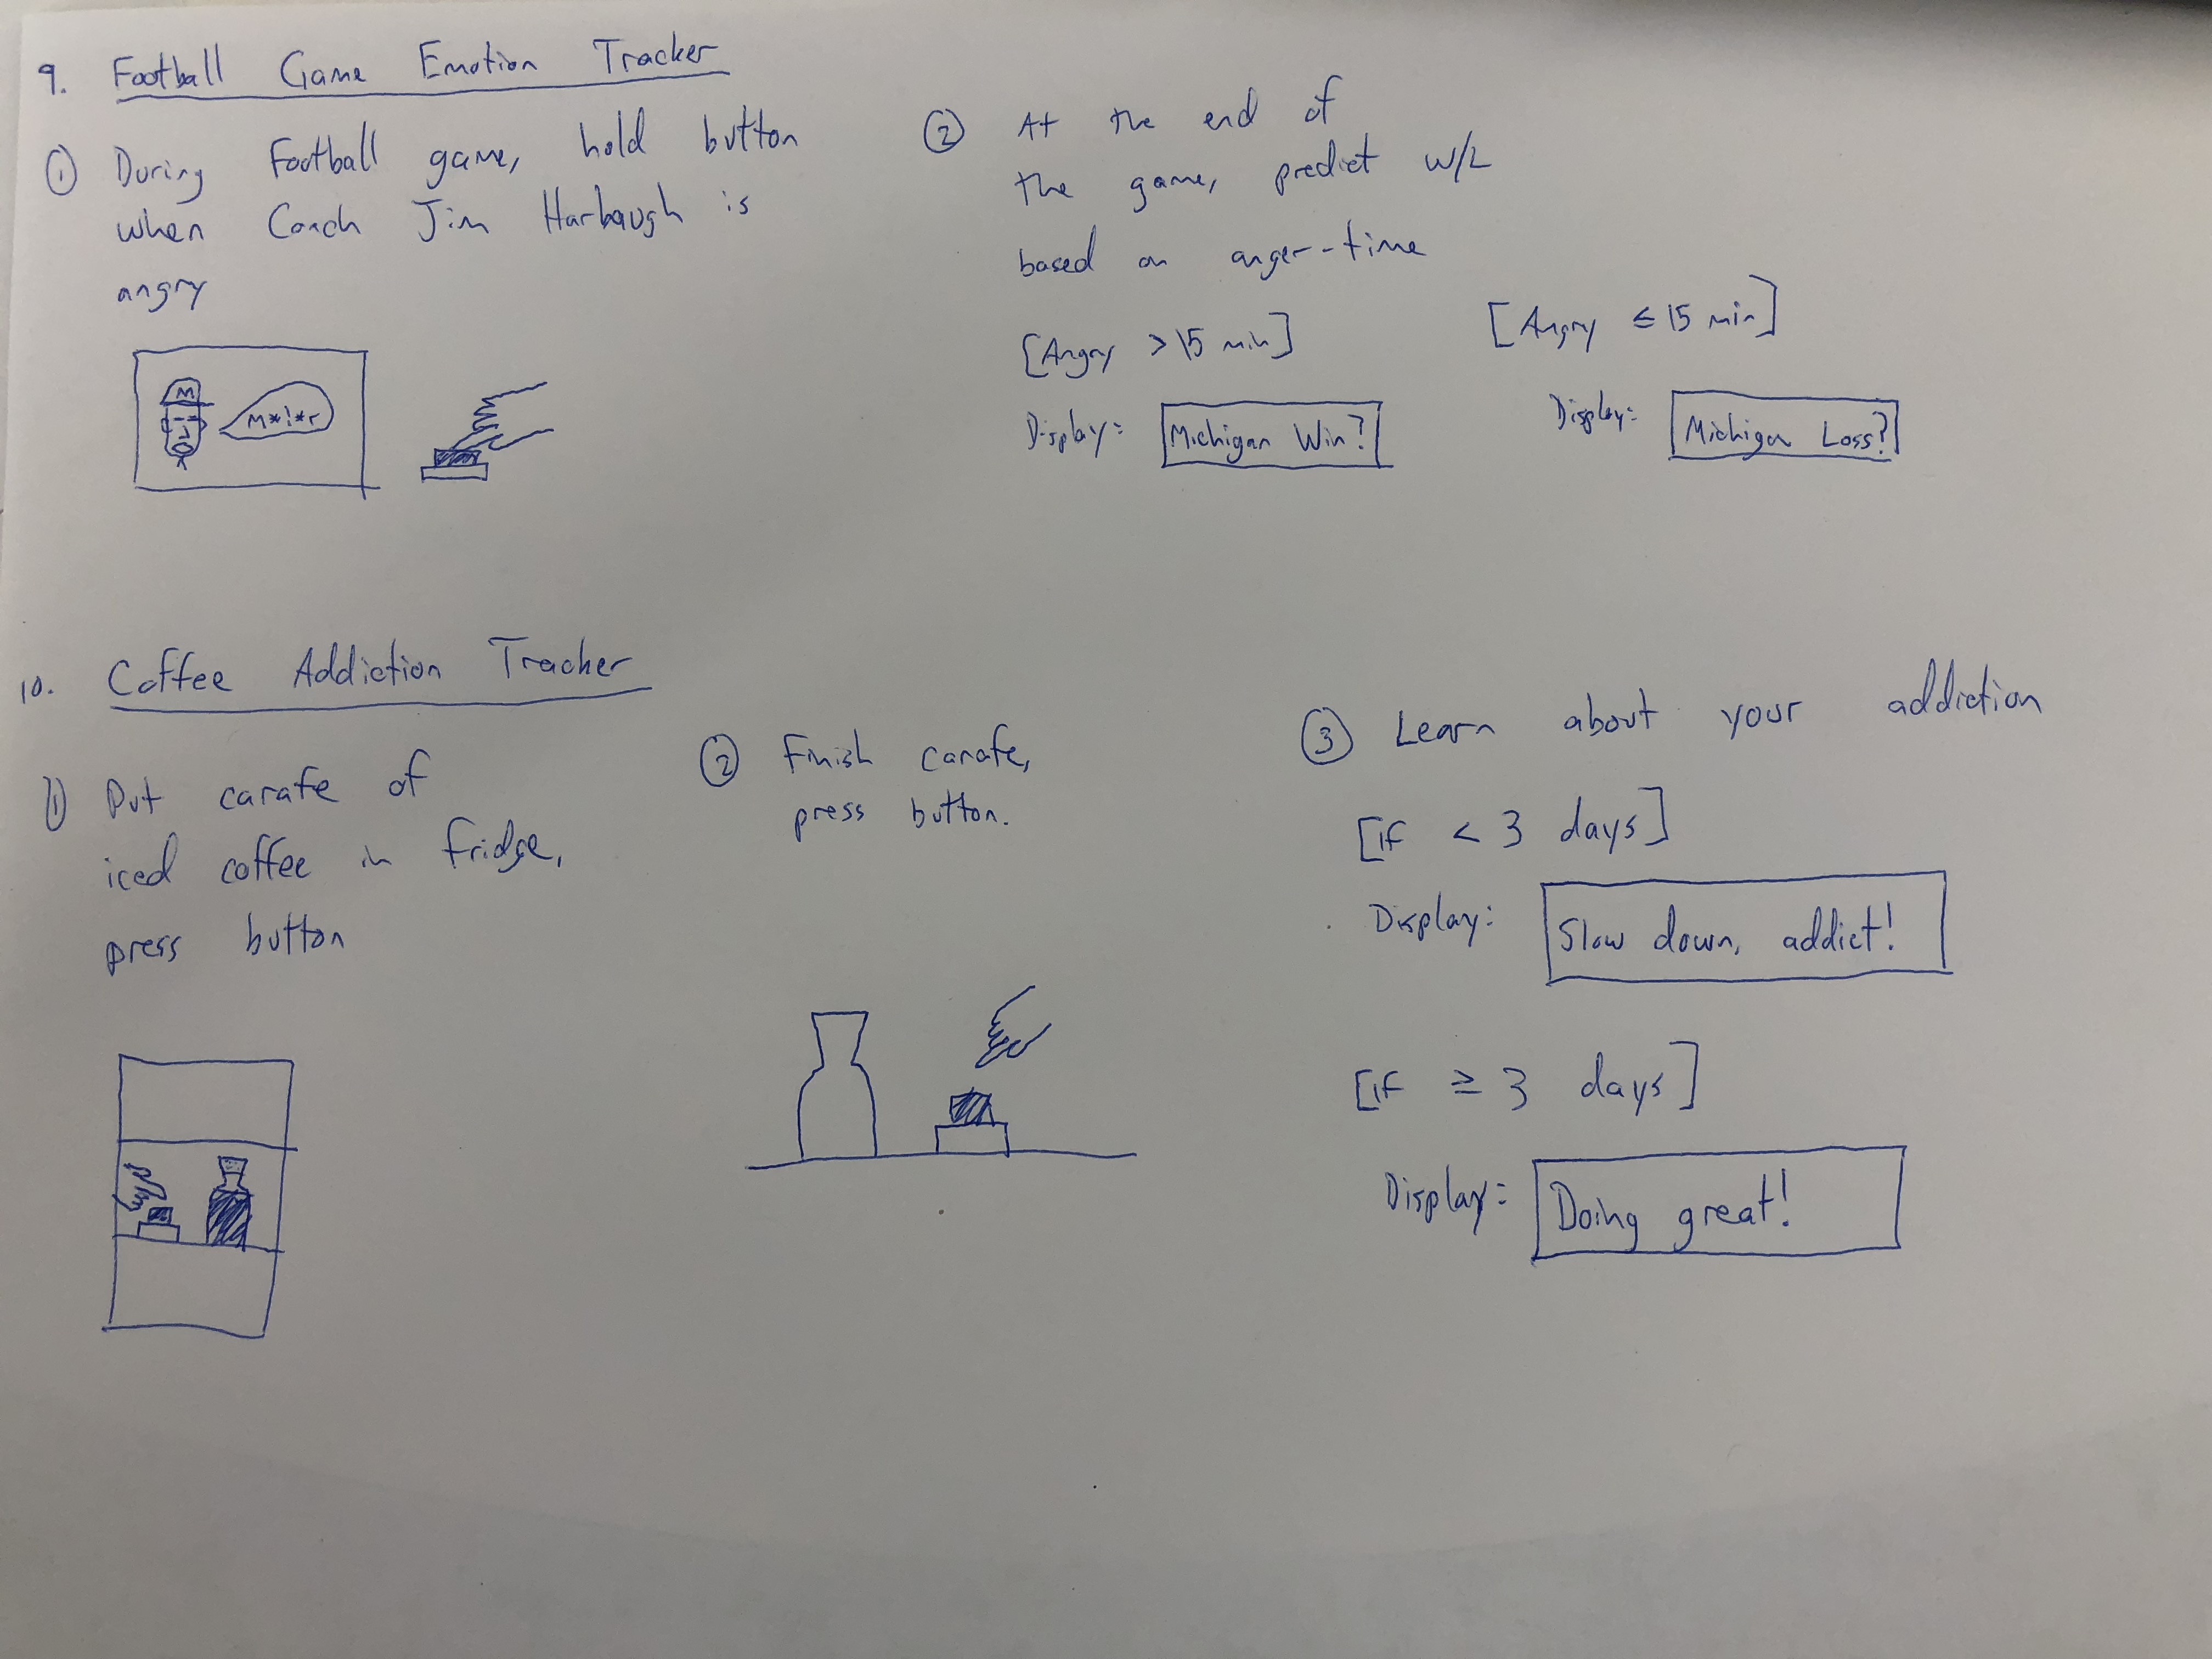 9. Football Game Emotion Tracker
① During football game, hold button
when Coach Jim Harbaugh is
angry
M
M*!*r
② At the end of
the game, predict W/L
based on anger-time
[Angry > 15 min]
Display: Michigan Win?
[Angry ≤ 15 min]
Display: Michigan Loss?
10. Coffee Addiction Tracker
① Put carafe of
iced coffee in fridge,
press button
② Finish carafe,
press button.
③ Learn about your addiction
[if < 3 days]
Display: Slow down, addict!
[if ≥ 3 days]
Display: Doing great!